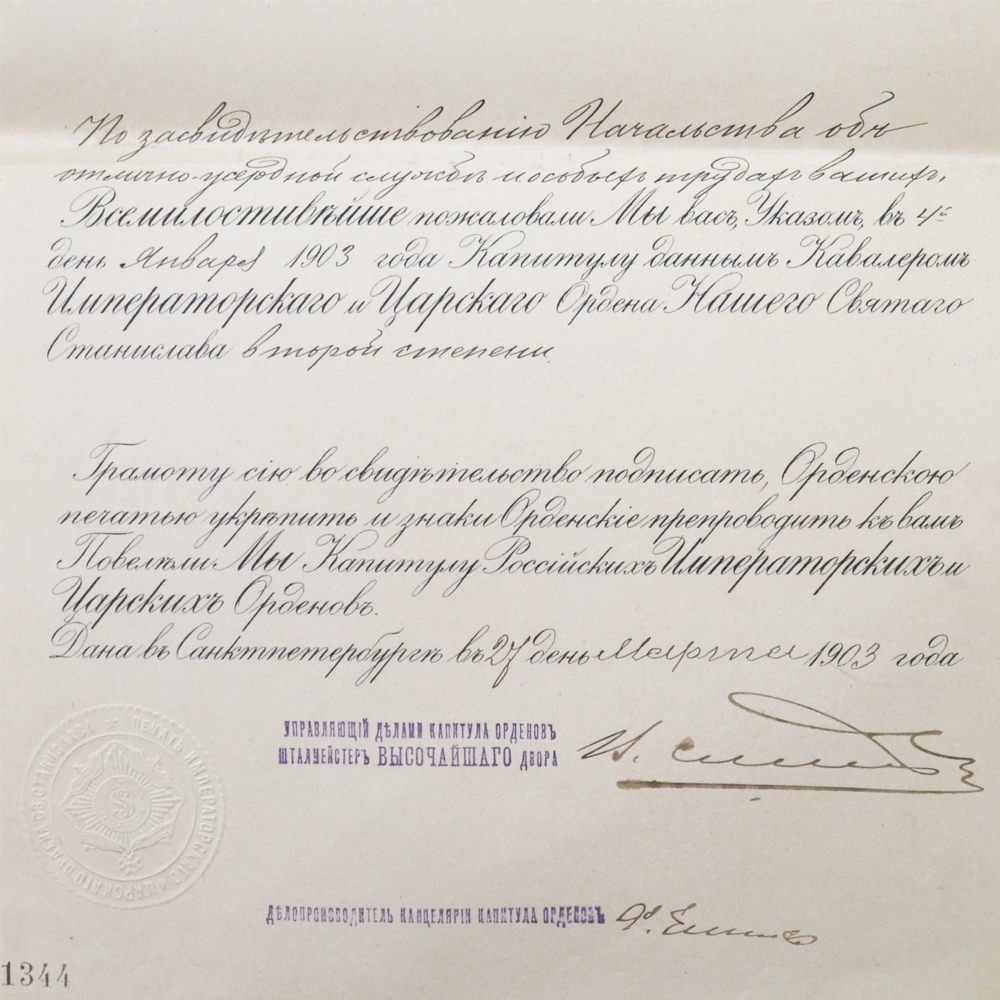 По засвидѣтельствованію Начальства объ
отлично-усердной службѣ и особыхъ трудахъ вашихъ,
Всемилостивѣйше пожаловали Мы васъ, Указомъ, въ 4й
день Января 1903 года Капитулу даннымъ Кавалеромъ
Императорскаго и Царскаго Ордена Нашего Святаго
Станислава второй степени.
Грамоту сію во свидѣтельство подписать, Орденскою
печатью укрѣпить и знаки Орденскіе препроводить къ вамъ
Повелѣли Мы Капитулу Россійскихъ Императорскихъ и
Царскихъ Орденовъ.
Дана въ Санктпетербургѣ въ 27 день Марта 1903 года
УПРАВЛЯЮЩІЙ ДѢЛАМИ КАПИТУЛА ОРДЕНОВЪ
ШТАЛМЕЙСТЕРЪ ВЫСОЧАЙШАГО ДВОРА
ПЕЧАТЬ ИМПЕРАТОРСКАГО И ЦАРСКАГО ОРДЕНА СВ СТАНИСЛАВА
ДѢЛОПРОИЗВОДИТЕЛЬ КАНЦЕЛЯРІИ КАПИТУЛА ОРДЕНОВЪ
1344